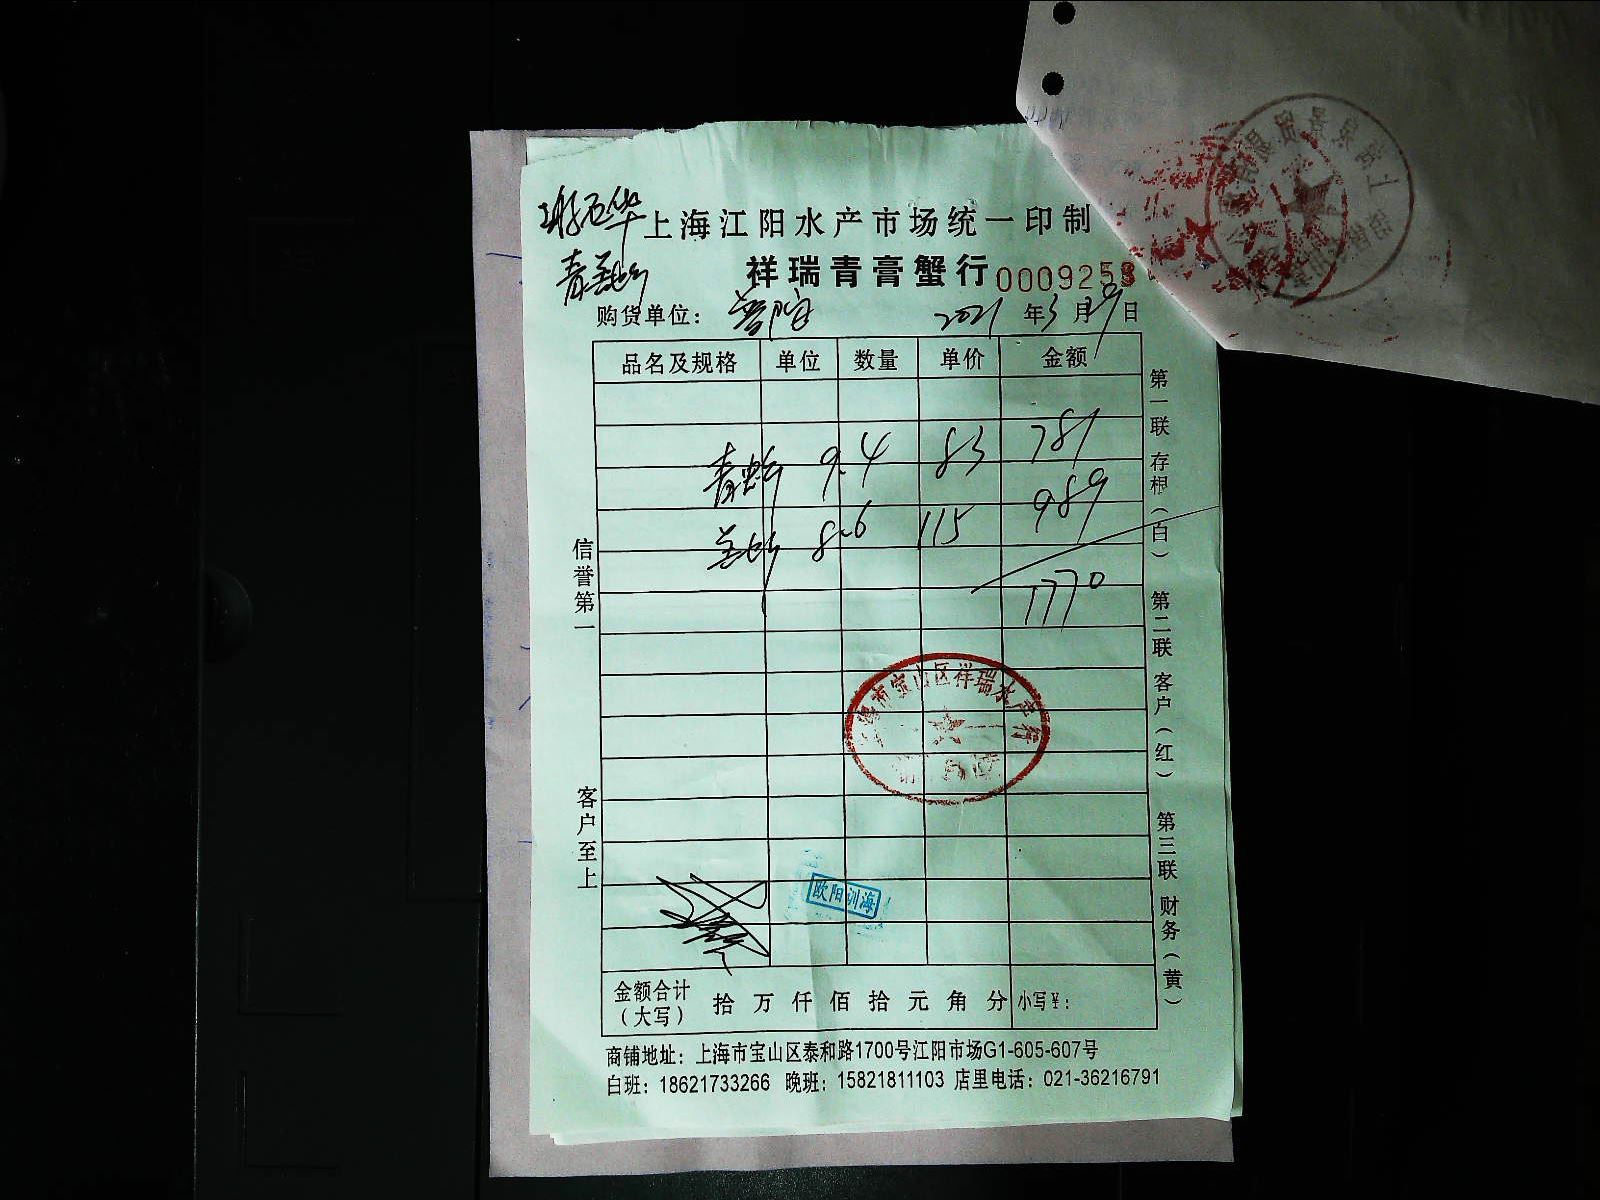 上海江阳水产市场统一印制
祥瑞青膏蟹行 0009258
购货单位： 2021 年 3 月 9 日
品名及规格 单位 数量 单价 金额
9.4 83 781
8.6 115 989
1770
上海市宝山区祥瑞水产行
欧阳训海
金额合计（大写） 拾 万 仟 佰 拾 元 角 分 小写￥：
商铺地址：上海市宝山区泰和路1700号江阳市场G1-605-607号
白班：18621733266 晚班：15821811103 店里电话：021-36216791
信誉第一 客户至上
第一联 存根（白） 第二联 客户（红） 第三联 财务（黄）